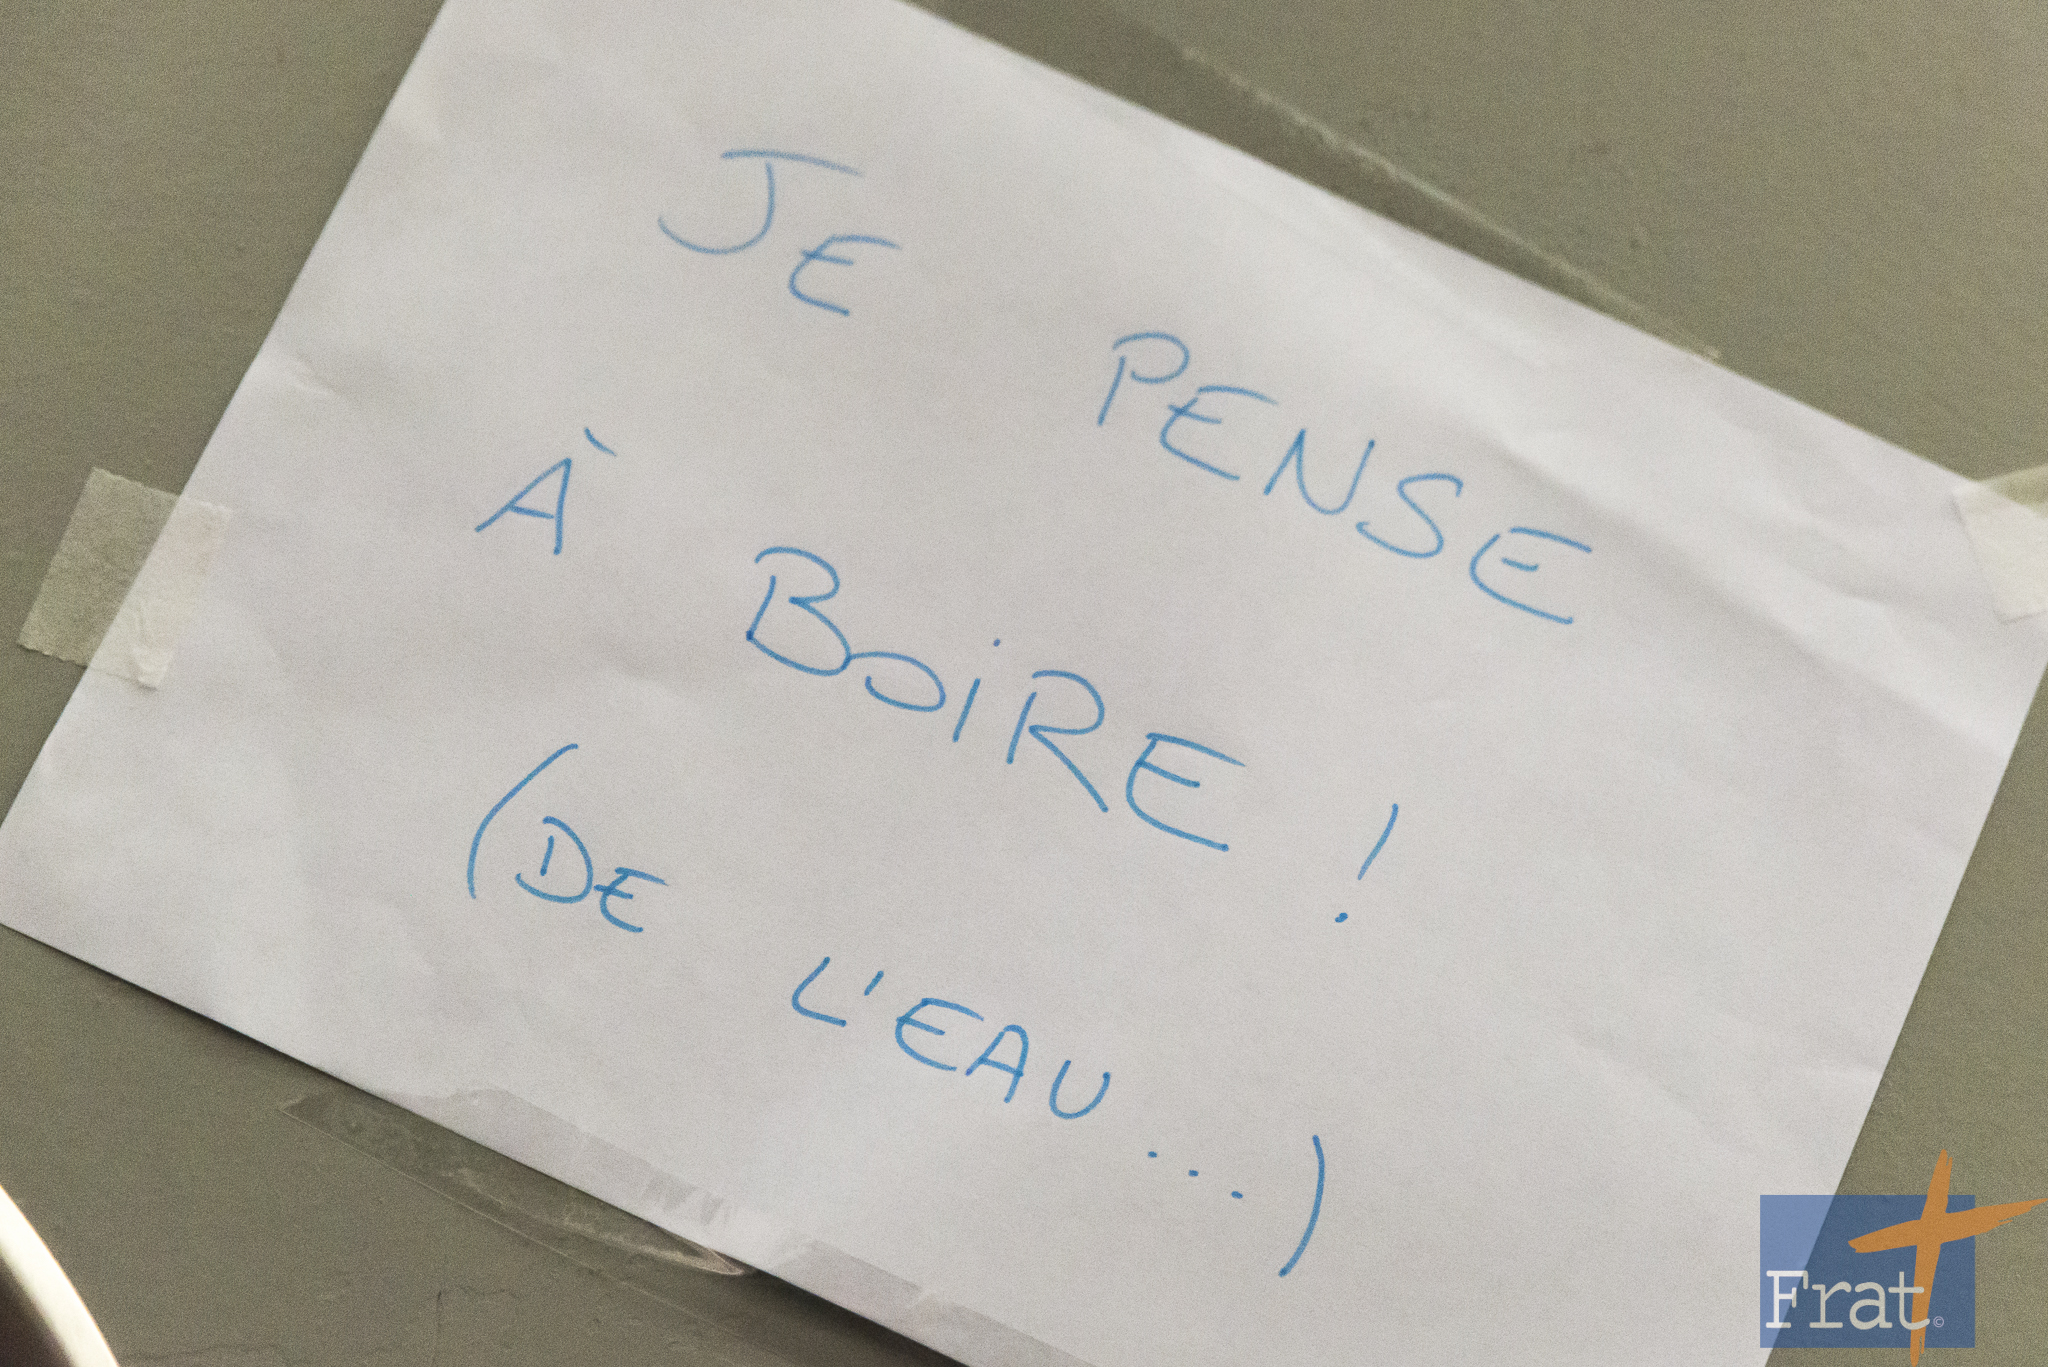 JE PENSE
À BOIRE !
(DE L'EAU...)
Frat ©